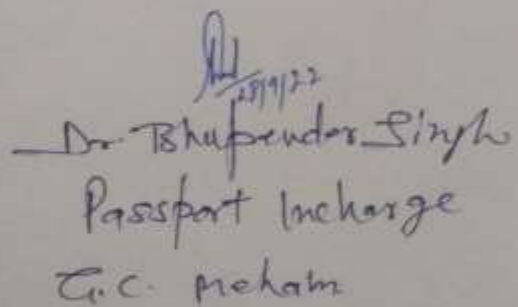 28/9/22
Dr. Bhupender Singh
Passport Incharge
G.C. Meham